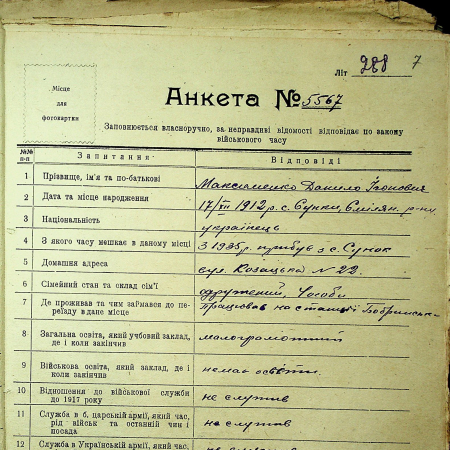 Літ 288 7
Місце
для
фотокартки
Анкета № 5567
Заповнюється власноручно, за неправдиві відомості відповідає по закону
військового часу
№№ п-п Запитання Відповіді
1 Прізвище, ім'я та по-батькові Максименко Данило
2 Дата та місце народження 17/XII 1912 р. с. Сунки, Смілян. р-ну
3 Національність українець
4 З якого часу мешкає в даному місці З 1935 р. прибув з с. Сунок
5 Домашня адреса вул. Козацька № 22.
6 Сімейний стан та склад сім'ї одружений, 4 особи
7 Де проживав та чим займався до пе-
реїзду в дане місце працював на станції
8 Загальна освіта, який учбовий заклад,
де і коли закінчив малограмотний
9 Військова освіта, який заклад, де і
коли закінчив немає освіти.
10 Відношення до військової служби
до 1917 року не служив
11 Служба в б. царській армії, який час,
рід військ та останній чин і
посада не служив
12 Служба в Українській армії, який час,